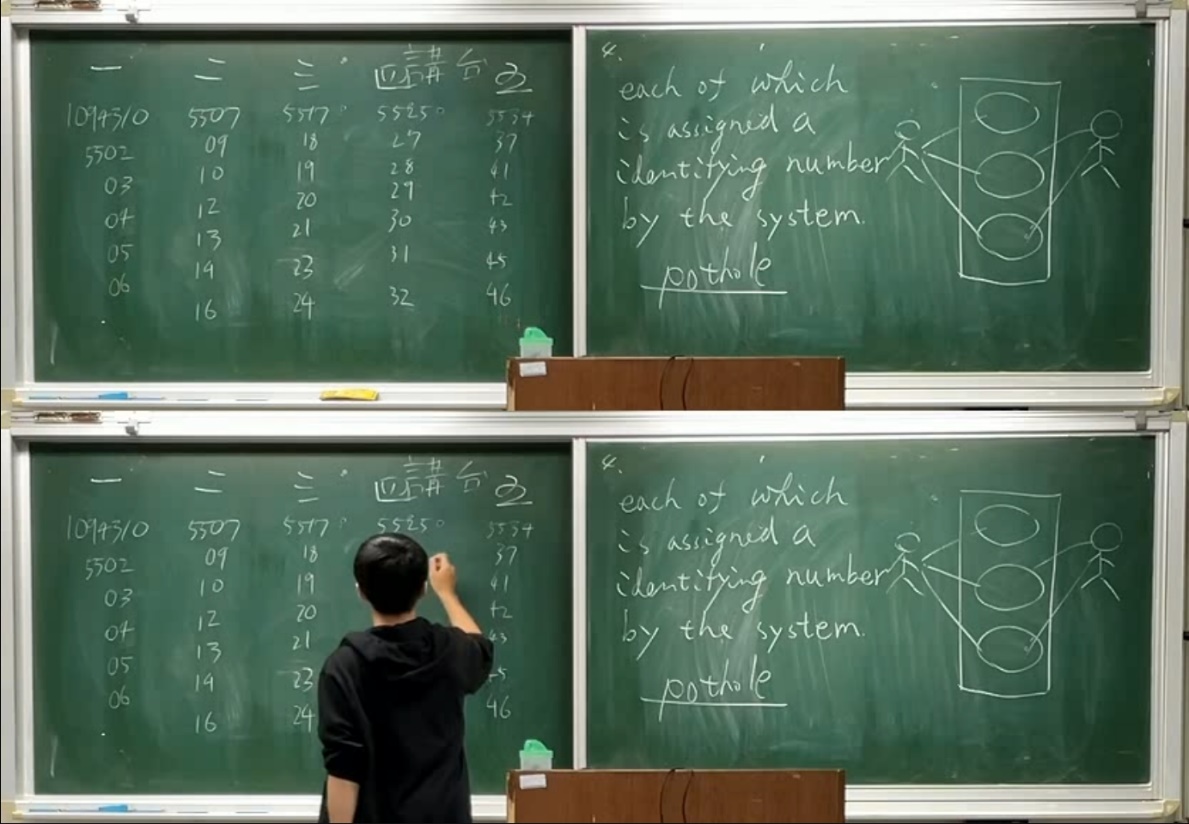 一 二 三 近講台 五
1094310 5507 5517 5525 5534
5502 09 18 27 37
03 10 19 28 41
04 12 20 29 42
05 13 21 30 43
06 14 23 31 45
16 24 32 46
4.
each of which
is assigned a
identifying number
by the system.
pothole
一 二 三 近講台 五
1094310 5507 5517 5525 5534
5502 09 18 37
03 10 19 41
04 12 20 42
05 13 21 43
06 14 23 45
16 24 46
4.
each of which
is assigned a
identifying number
by the system.
pothole